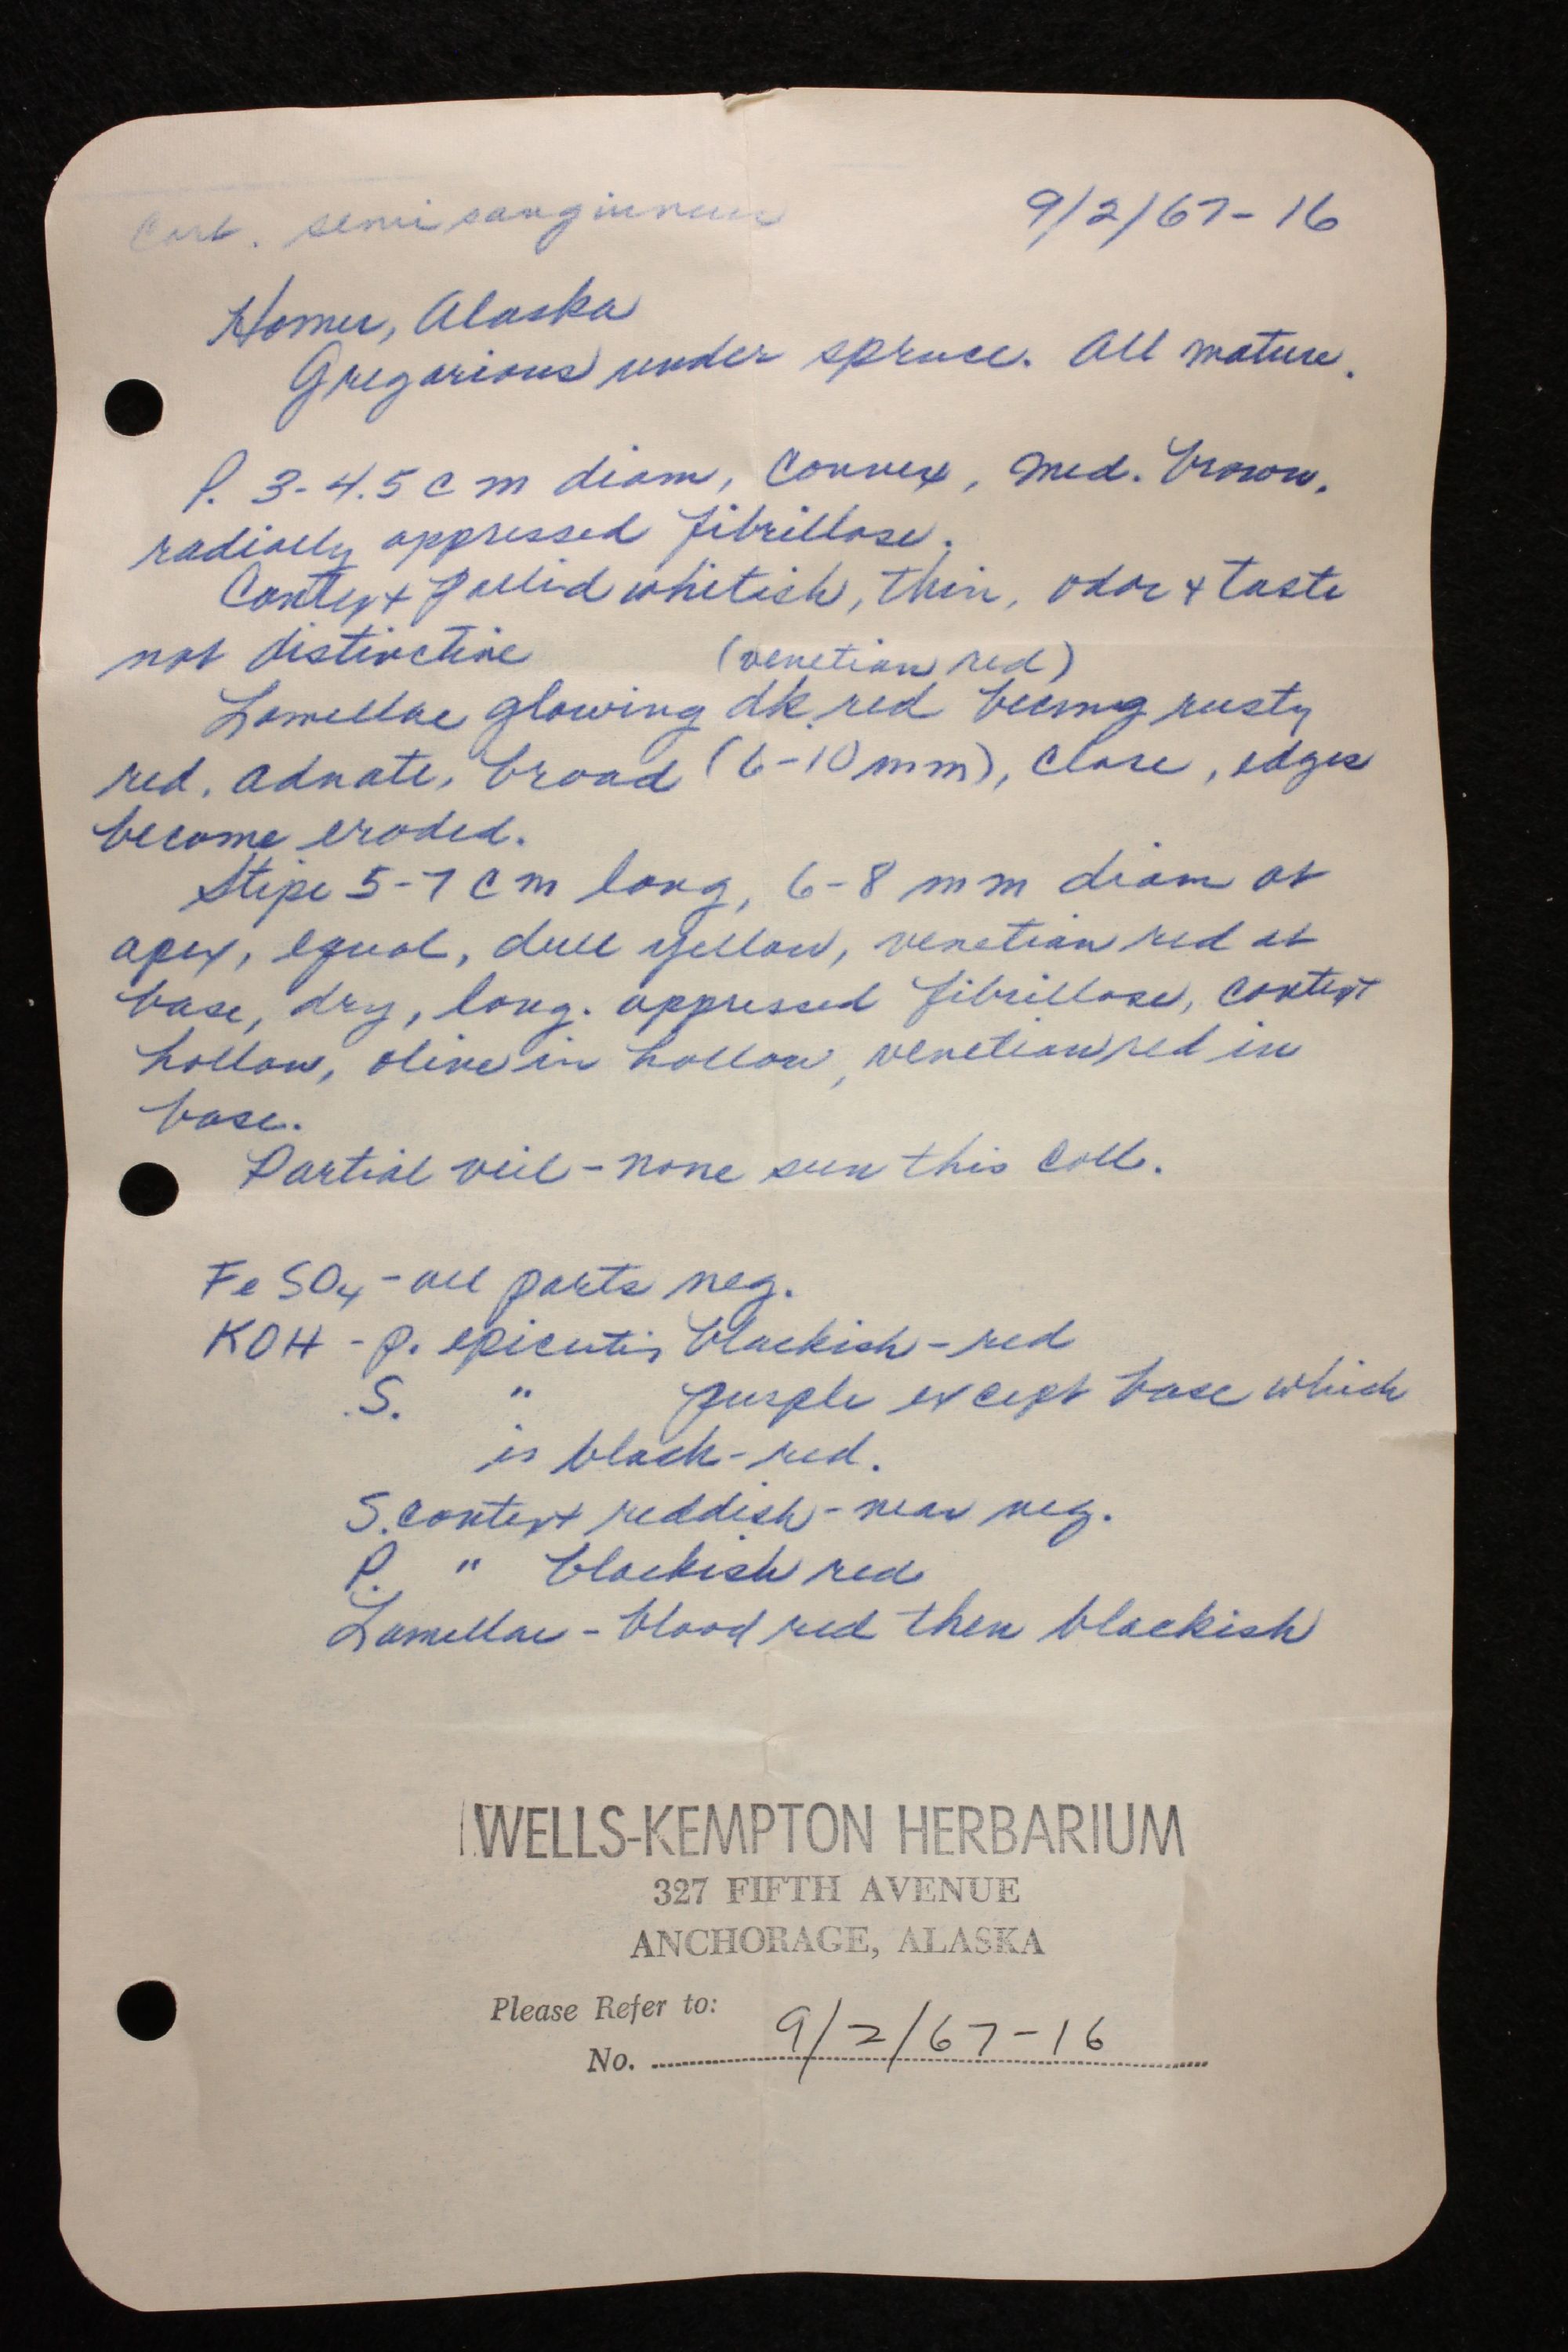 Cort. semisanguineus 9/2/67-16
Homer, Alaska
Gregarious under spruce. All mature.
P. 3-4.5 cm diam, convex, med. brown,
radially appressed fibrillose.
Context pallid whitish, thin, odor + taste
not distinctive (venetian red)
Lamellae glowing dk red becmg rusty
red, adnate, broad (6-10 mm), close, edges
become eroded.
Stipe 5-7 cm long, 6-8 mm diam at
apex, equal, dull yellow, venetian red at
base, dry, long. appressed fibrillose, context
hollow, olive in hollow, venetian red in
base.
Partial veil - none seen this coll.
FeSO4 - all parts neg.
KOH - P. epicutis blackish-red
S. " purple except base which
is black-red.
S. context reddish - near neg.
P. " blackish red
Lamellae - blood red then blackish
WELLS-KEMPTON HERBARIUM
327 FIFTH AVENUE
ANCHORAGE, ALASKA
Please Refer to:
No. 9/2/67-16